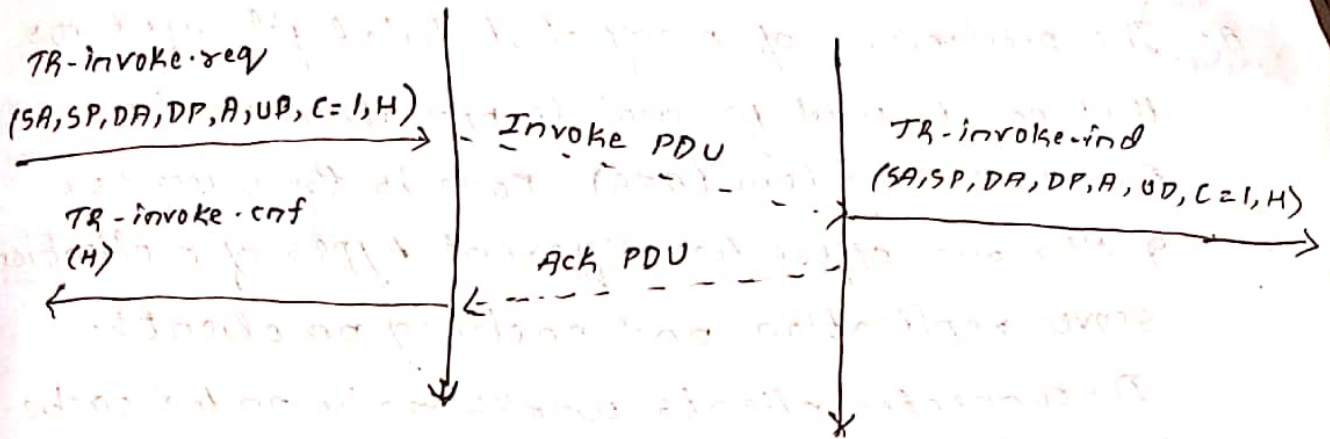 TR-invoke.req
(SA, SP, DA, DP, A, UD, C=1, H)
Invoke PDU
TR-invoke.ind
(SA, SP, DA, DP, A, UD, C=1, H)
TR-invoke.cnf
(H)
Ack PDU